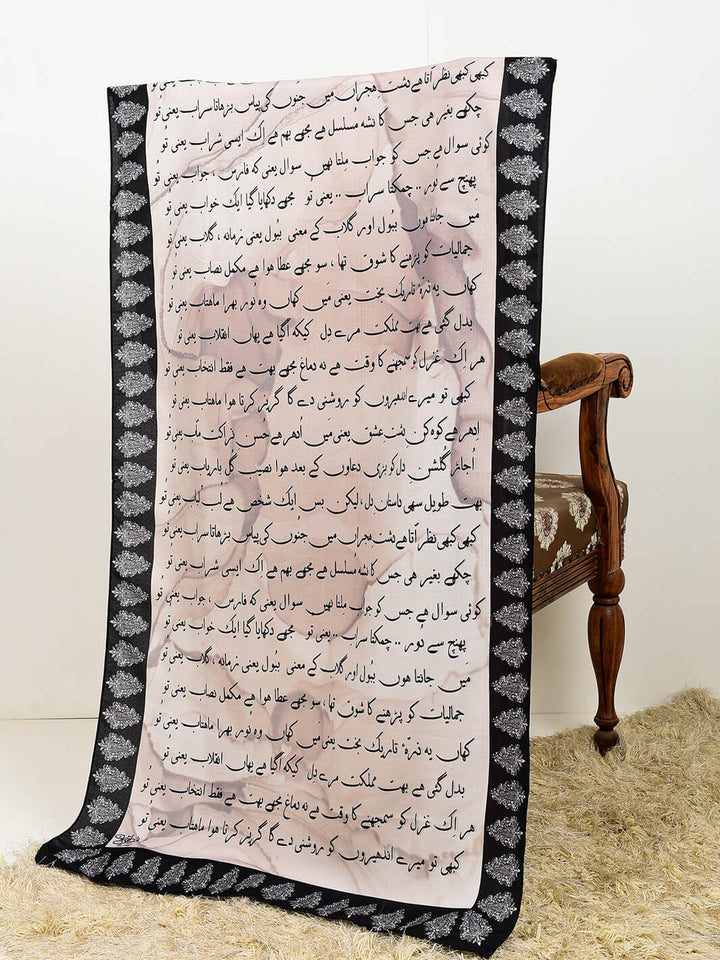 کبھی کبھی نظر آتا ہے دشت ہجراں میں جنُوں کی پیاس بڑھاتا سراب یعنی تُو
چکھے بغیر ہی جس کا نشہ مسلسل ہے مجھے بہم ہے اِک ایسی شراب یعنی تُو
کوئی سوال ہے جس کو جواب مِلتا نہیں سوال یعنی کہ فارس ، جواب یعنی تُو
پہنچ سے دور .. چمکتا سراب .. یعنی تُو مجھے دکھایا گیا ایک خواب یعنی تُو
مَیں جانتا ہوں ببُول اور گلاب کے معنی ببُول یعنی زمانہ ، گلاب یعنی تُو
جمالیات کو پڑھنے کا شوق تھا ، سو مجھے عطا ہوا ہے مکمل نصاب یعنی تُو
کہاں یہ ذرّہٴ تاریک بخت یعنی مَیں کہاں وہ نُور بھرا ماھتاب یعنی تُو
بدل گئی ہے بہت مملکت مرے دِل کی کہ آگیا ہے یہاں انقلاب یعنی تُو
ہر اِک غزل کو سمجھنے کا وقت ہے نہ دماغ مجھے بہت ہے فقط انتخاب یعنی تُو
کبھی تو میرے اندھیروں کو روشنی دے گا گریز کرتا ہوا ماھتاب یعنی تُو
اِدھر ہے کوہ کن دشتِ عشق یعنی مَیں اُدھر ہے حسن نزاکت مآب یعنی تُو
اُجاڑ گلشن دل کو بڑی دعاوں کے بعد ہوا نصیب گل باریاب یعنی تُو
بہت طویل سہی داستان دل ، لیکن بس ایک شخص ہے لُب لباب یعنی تُو
کبھی کبھی نظر آتا ہے دشت ہجراں میں جنُوں کی پیاس بڑھاتا سراب یعنی تُو
چکھے بغیر ہی جس کا نشہ مُسلسل ہے مجھے بہم ہے اِک ایسی شراب یعنی تُو
کوئی سوال ہے جس کو جواب ملتا نہیں سوال یعنی کہ فارس ، جواب یعنی تُو
پہنچ سے دور .. چمکتا سراب .. یعنی تُو مجھے دکھایا گیا ایک خواب یعنی تُو
مَیں جانتا ہوں ببُول اور گلاب کے معنی ببُول یعنی زمانہ ، گلاب یعنی تُو
جمالیات کو پڑھنے کا شوق تھا ، سو مجھے عطا ہوا ہے مکمل نصاب یعنی تُو
کہاں یہ ذرّہٴ تاریک بخت یعنی مَیں کہاں وہ نُور بھرا ماھتاب یعنی تُو
بدل گئی ہے بہت مملکت مرے دِل کی کہ آگیا ہے یہاں انقلاب یعنی تُو
ہر اِک غزل کو سمجھنے کا وقت ہے نہ دماغ مجھے بہت ہے فقط انتخاب یعنی تُو
کبھی تو میرے اندھیروں کو روشنی دے گا گریز کرتا ہوا ماھتاب یعنی تُو